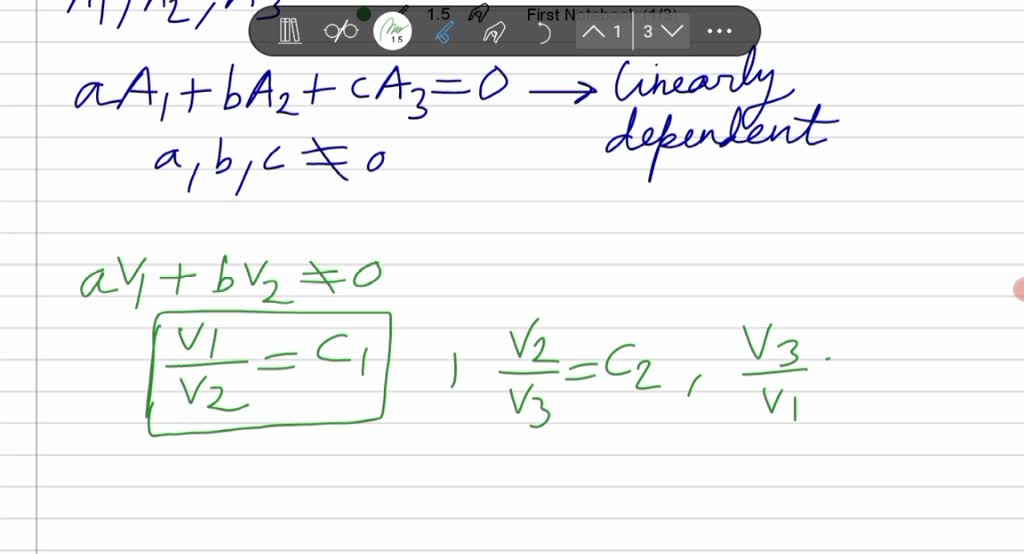 1.5 First Notebook (1/3)
15 1 3
aA₁ + bA₂ + cA₃ = 0 → linearly
dependent
a, b, c ≠ 0
aV₁ + bV₂ ≠ 0
V1/V2 = C₁ , V2/V3 = C₂ , V3/V1